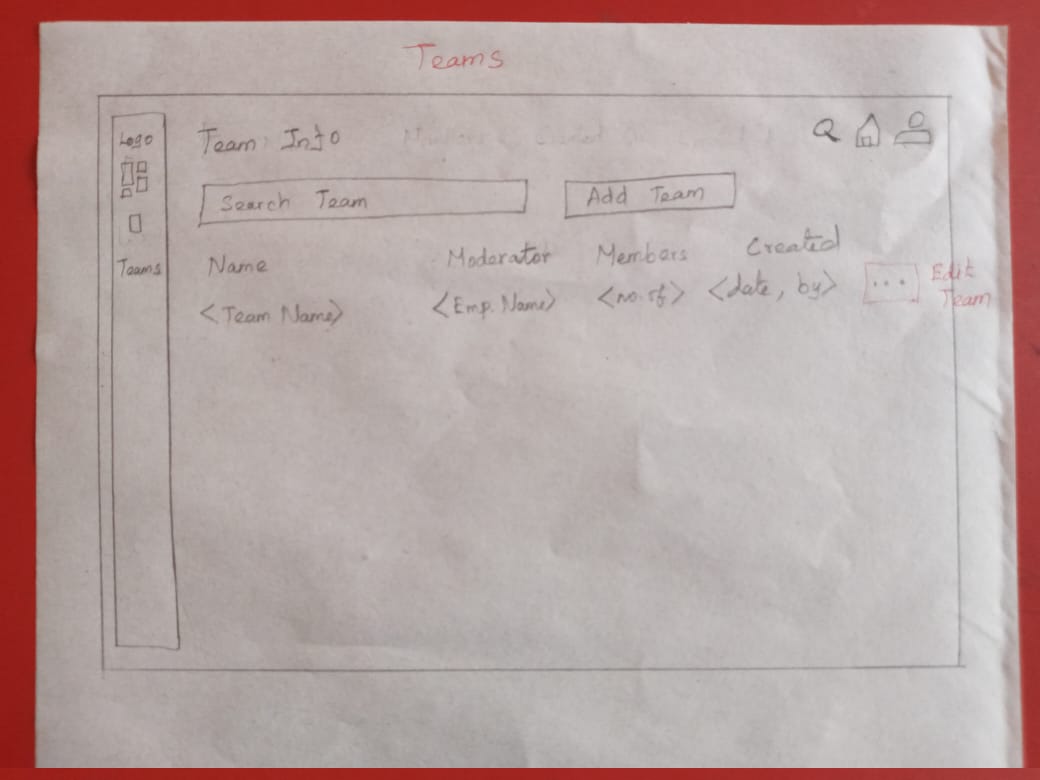 Teams
Logo
Team Info
Search Team
Add Team
Teams
Name
Moderator
Members
Created
<Team Name>
<Emp. Name>
<no. of>
<date, by>
...
Edit
Team